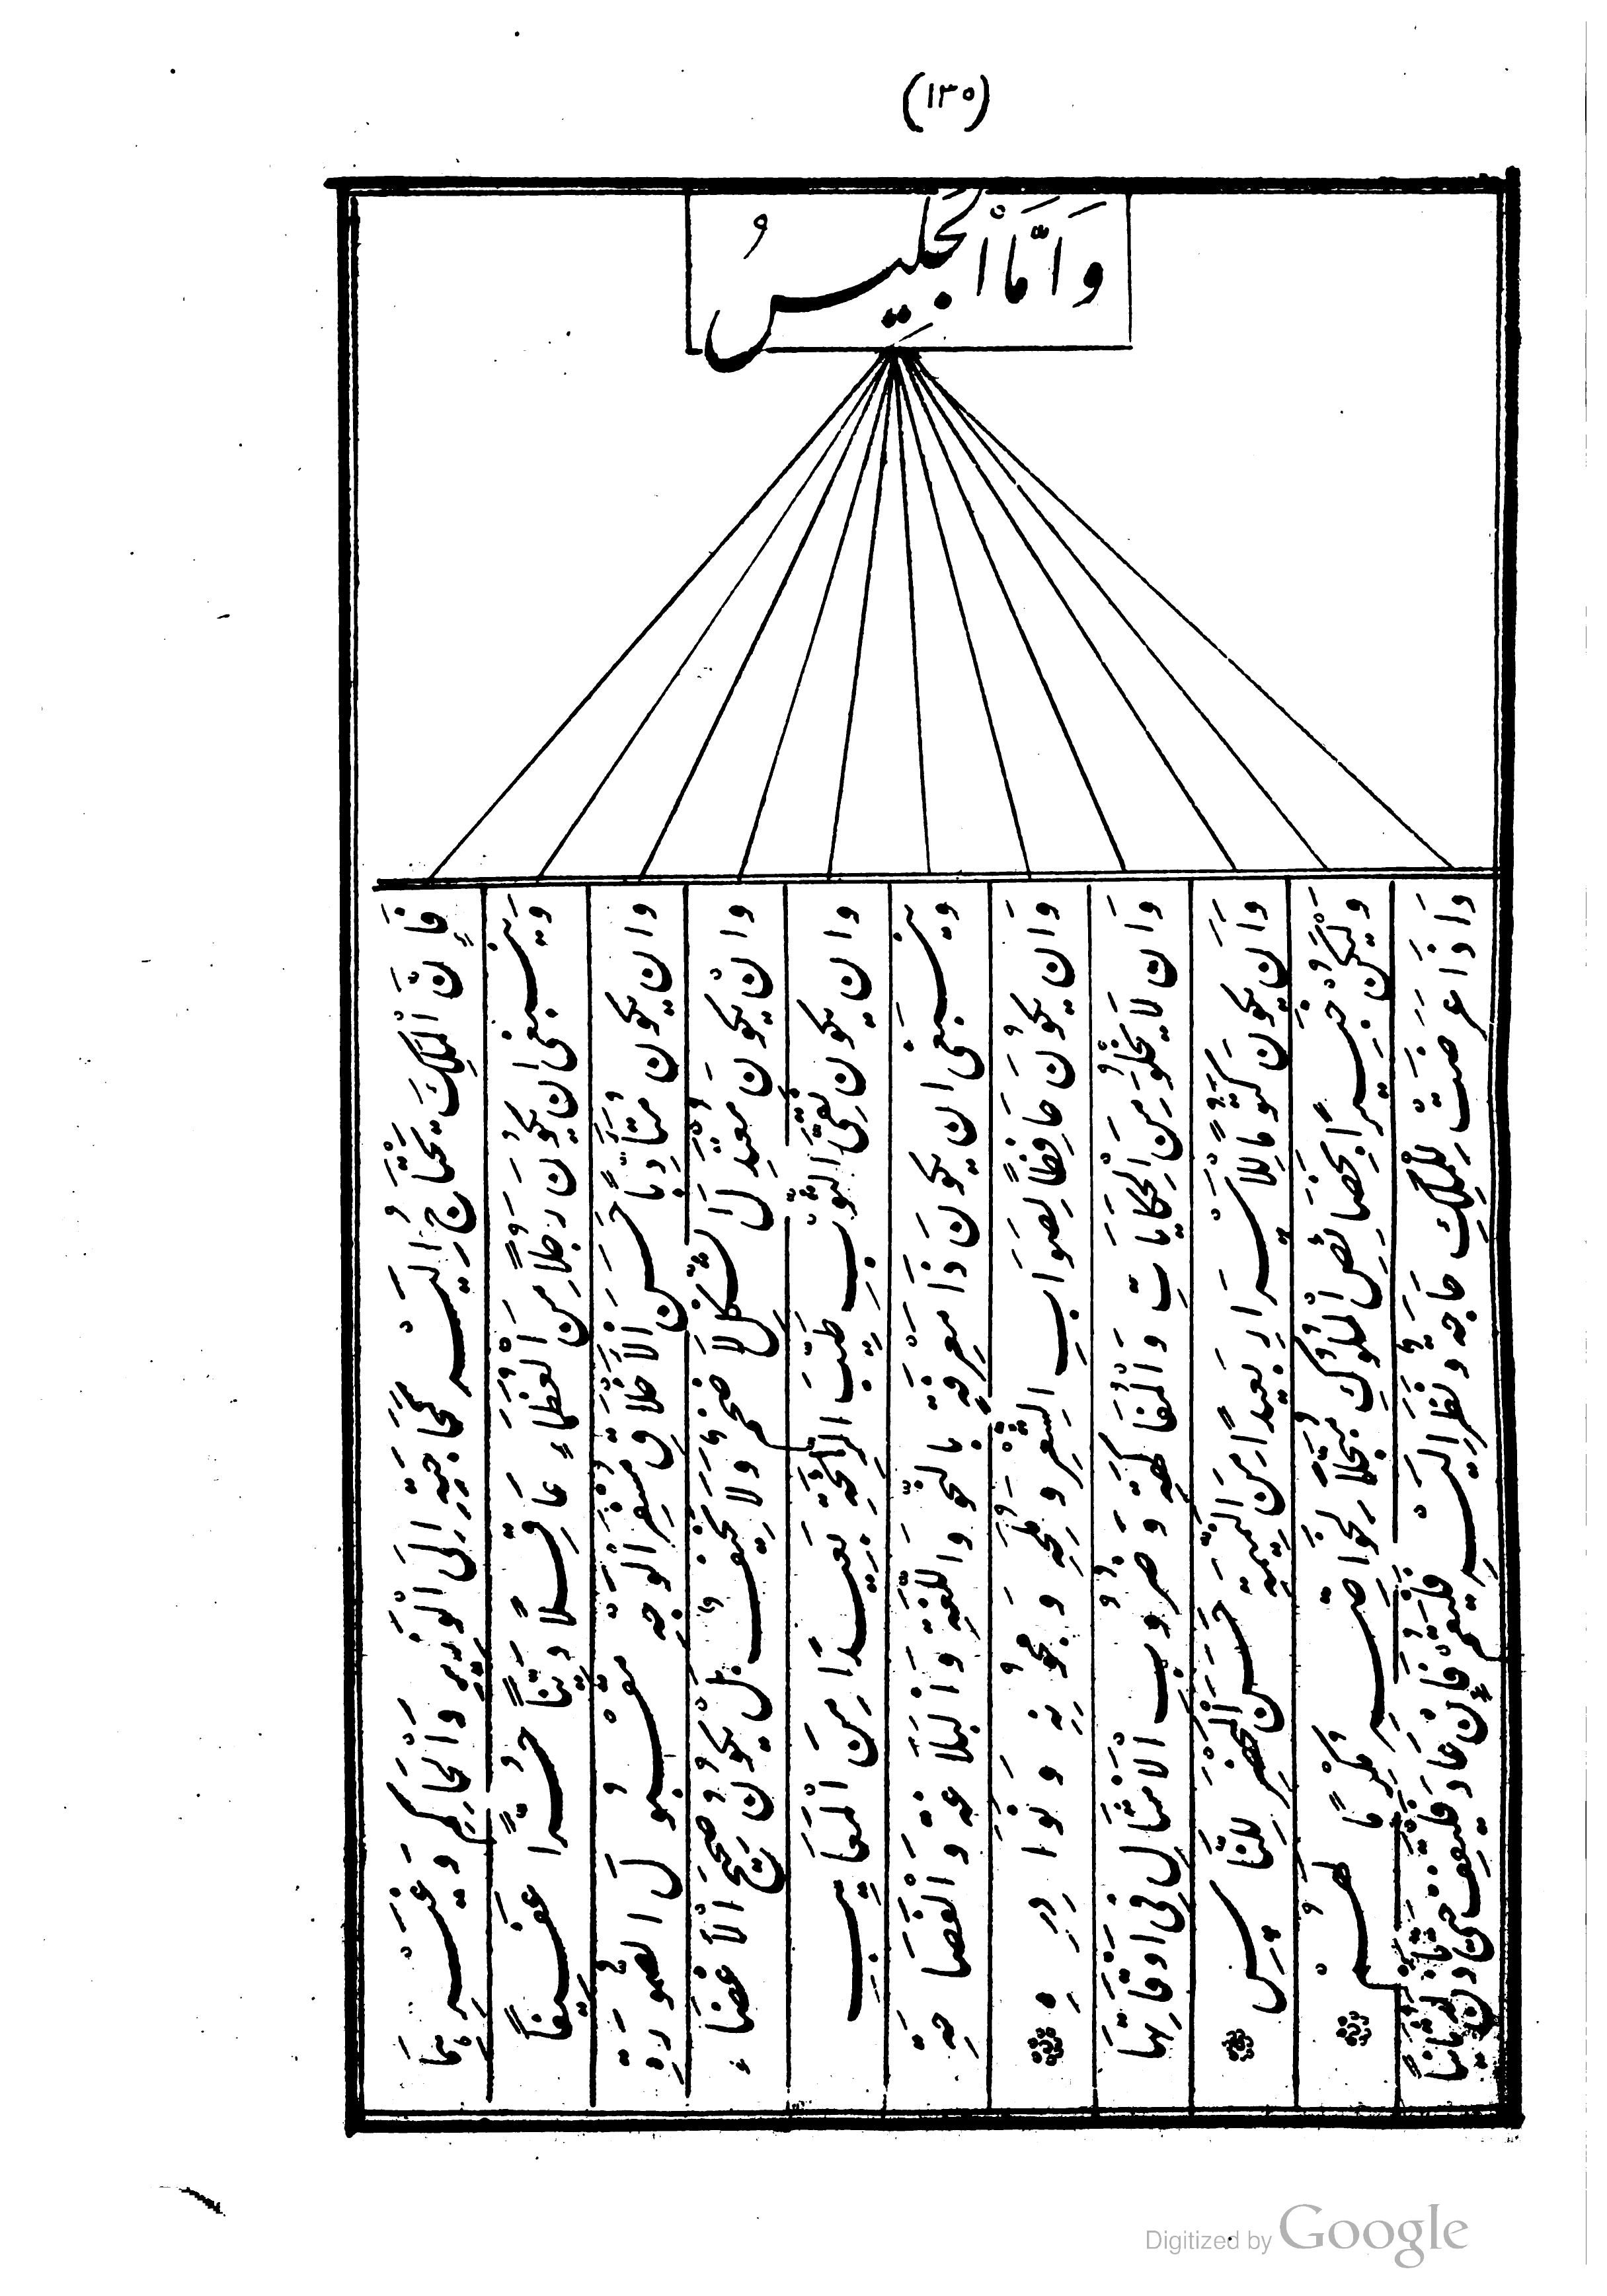 (١٣٥)
وَاَمَّا اْلجَلِيسُ
فَإِنَّ اْلمَلِكَ يَحْتَاجُ اِلَيْهِ كَحَاجَتِهِ اِلَى اْلوَزِيرِ وَاْلحَاكِمِ وَغَيْرِهِمَا
وَيَنْبَغى ان يكُونَ رَجُلاً مِنَ اْلعُظَمَاءِ عَاقِلاً دَيِّنًا حُرًّا عَفِيفًا
وَان يكون مُتَأَدِّبًا حَسَنَ اْلاَخْلاَقِ مُسْفِرَ اْلوَجْهِ مَقْبُولَ الصُّورَةِ
وَانْ يكون مُعْتَدِلَ الشَّكْلِ لاَ ضخم وَلا نَحِيف بَلْ يَكُونُ صَحِيحَ اْلاَعْضَاءِ
وان يكون نَقِىَّ الثَّوْبِ طَيِّبَ الرَّائِحَةِ بَعِيدًا مِنَ اْلمَعَايِبِ
وَيَنْبَغى ان يكونَ ذَا مَعْرِفَةٍ بالنَّحْوِ وَاللُّغَةِ وَاْلبَلاَغَةِ وَاْلفَصَاحَةِ
وَانَ يكُونَ حَافِظًا لِصَوَابِ الشِّعْرِ وَمُلَحِهِ وَمُجُونِهِ وَنَوَادِرِهِ
وَان لاَ يَخْلُوَ مِنَ اْلحِكَايَاتِ وَاْلمُفَاكَهَةِ وَضُرُوبِ اْلاَمْثَالِ فِى اَوْقَاتِهَا
وَاَن يكون كَتُومًا لِلاَسْرَارِ بَعِيدًا مِنَ النَّمِيمَةِ حَسَنَ اْلمَحْضَرِ لِلنَّاسِ
وَلْيَكُنْ خَبِيرًا بِخَصَائِصِ اْلمُلُوكِ مُبَجِّلاً لِخَوَاصِّهِ مُكْرِمًا لَهُمْ
وَاذَا عَرَضَتْ لِلْمَلِكِ حَاجَة وَنَظَرَ اِلَيْهِ فَلْيَقُمْ فَإِنْ عَادَ فَلْيَقِفْ حَتَّى يأذن لَهُ ثَانِيًا
Digitized by Google